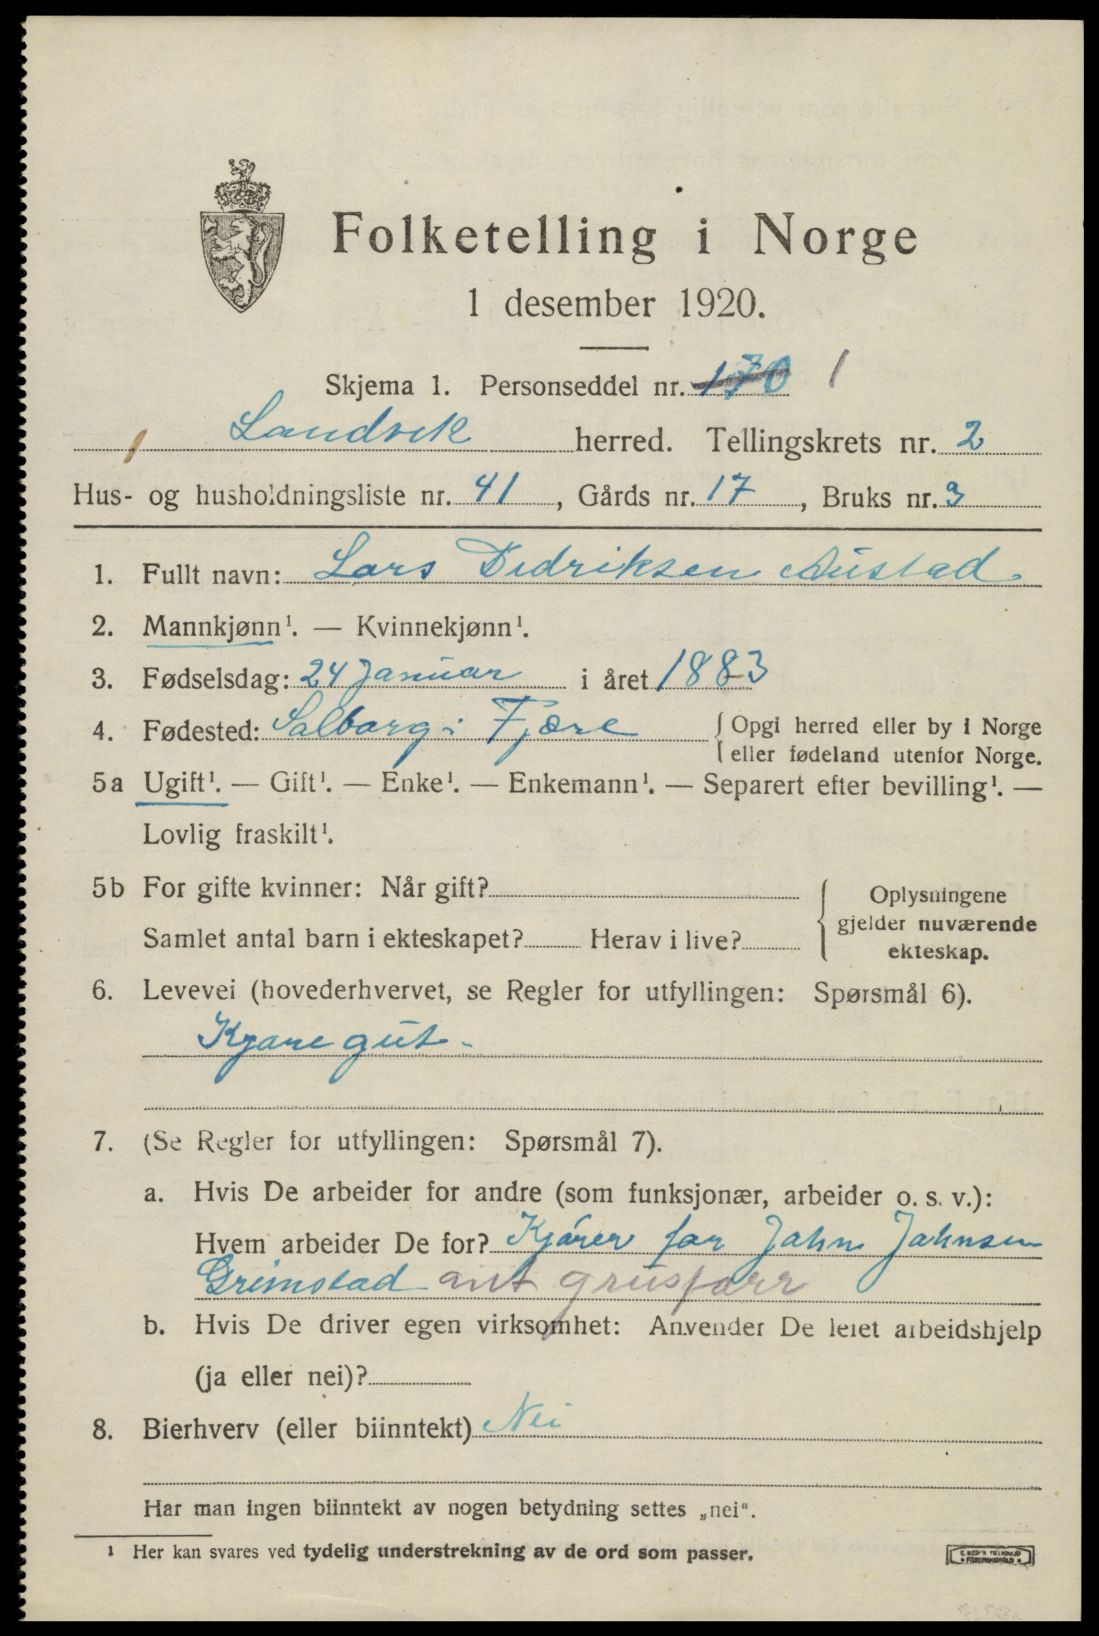 Folketelling i Norge
1 desember 1920.
Skjema 1. Personseddel nr. 170 1
Landvik herred. Tellingskrets nr. 2
Hus- og husholdningsliste nr. 41, Gårds nr. 17, Bruks nr. 3
1. Fullt navn: Lars Didriksen Austad
2. Mannkjønn¹. — Kvinnekjønn¹.
3. Fødselsdag: 24 Januar i året 1883
4. Fødested: Salbarg i Fjære { Opgi herred eller by i Norge
eller fødeland utenfor Norge.
5a Ugift¹. — Gift¹. — Enke¹. — Enkemann¹. — Separert efter bevilling¹. —
Lovlig fraskilt¹.
5b For gifte kvinner: Når gift? { Oplysningene
gjelder nuværende
ekteskap.
Samlet antal barn i ekteskapet? Herav i live?
6. Levevei (hovederhvervet, se Regler for utfyllingen: Spørsmål 6).
Kjøregut.
7. (Se Regler for utfyllingen: Spørsmål 7).
a. Hvis De arbeider for andre (som funksjonær, arbeider o. s. v.):
Hvem arbeider De for? Kjører for John Johnsen
Grimstad
b. Hvis De driver egen virksomhet: Anvender De leiet arbeidshjelp
(ja eller nei)?
8. Bierhverv (eller biinntekt) Nei
Har man ingen biinntekt av nogen betydning settes „nei“.
¹ Her kan svares ved tydelig understrekning av de ord som passer.